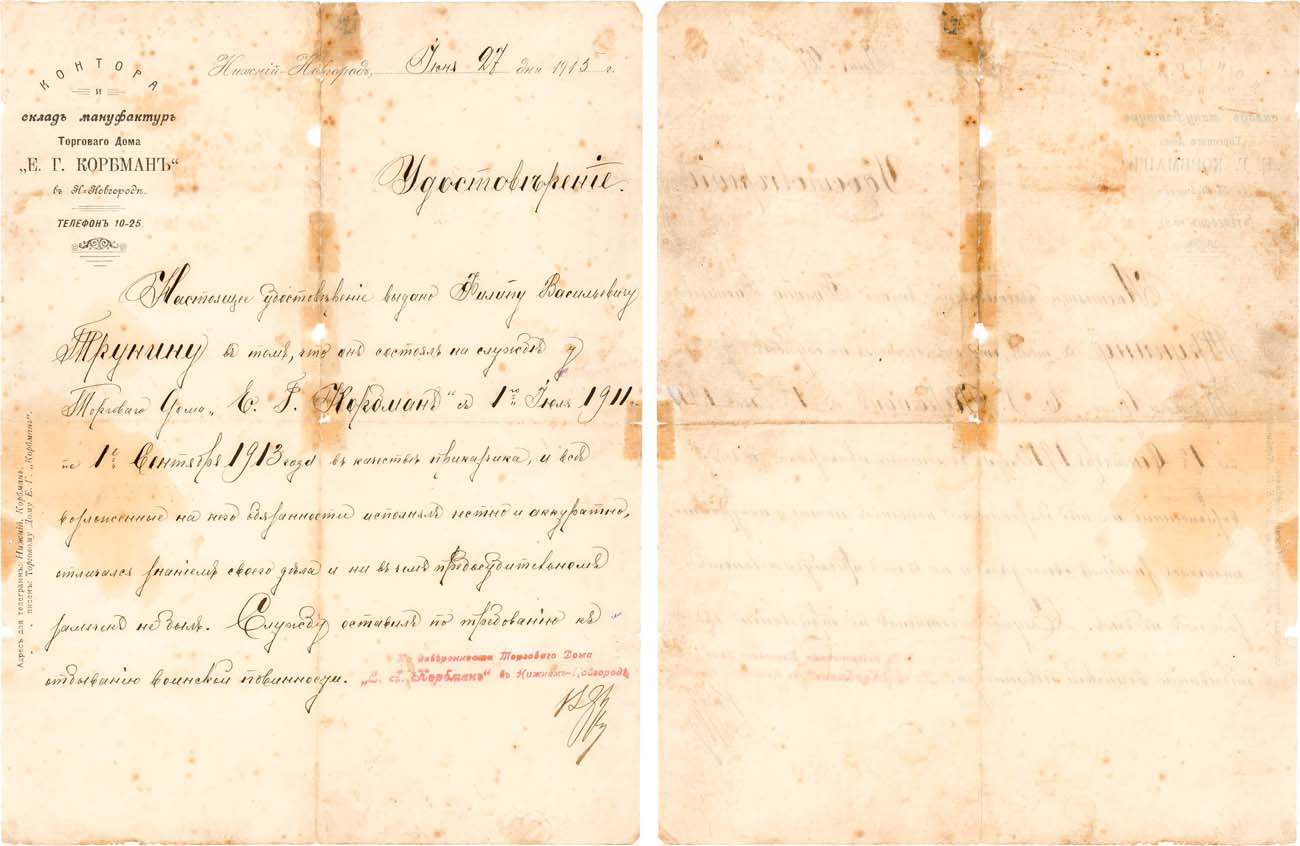 КОНТОРА
И
складъ мануфактуръ
Торговаго Дома
„Е. Г. КОРБМАНЪ“
въ Н-Новгородѣ.
ТЕЛЕФОНЪ 10-25.
Нижній-Новгородъ, Іюня 27 дня 1915 г.
Удостовѣреніе.
Настоящее удостовѣреніе выдано Филипу Васильевичу
Трунину въ томъ, что онъ состоялъ на службѣ у
Торговаго Дома „Е. Г. Корбманъ“ съ 1го Іюля 1911 г.
по 1е Сентября 1913 года въ качествѣ приказчика, и всѣ
возложенные на него обязанности исполнялъ честно и аккуратно,
отличался знаніемъ своего дѣла и ни въ чемъ предосудительномъ
замѣченъ не былъ. Службу оставилъ по требованію къ
отбыванію воинской повинности.
По довѣренности Торговаго Дома
„Е. Г. Корбманъ“ въ Нижнемъ-Новгородѣ
Адресъ для телеграммъ: Нижній, Корбманъ.
„ писемъ: Торговому Дому Е. Г. „Корбманъ“.